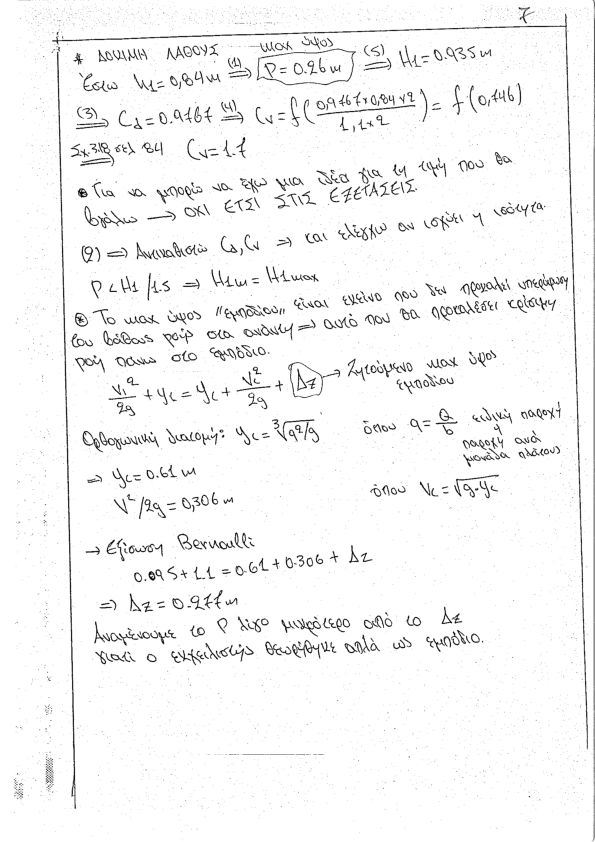 7
* ΔΟΚΙΜΗ ΛΑΘΟΥΣ max ύψος
Έστω h1=0,84m (1)⟹ P=0.26m (5)⟹ H1=0.935m
(3)⟹ Cd=0.9767 (4)⟹ Cv=f(0,9767×0,84×2 / 1,1×2) = f(0,746)
Σχ.3.18 σελ 84 Cv=1.7
Για να μπορώ να έχω μια ιδέα για τη τιμή που θα
βγάλω → ΟΧΙ ΕΤΣΙ ΣΤΙΣ ΕΞΕΤΑΣΕΙΣ.
(2) ⟹ Αντικαθιστώ Cd, Cv ⟹ και ελέγχω αν ισχύει η ισότητα.
P<H1/1.5 ⟹ H1m=H1max
⊛ Το max ύψος "εμποδίου" είναι εκείνο που δεν προκαλεί υπερύψωση
του βάθους ροής στα ανάντη ⟹ αυτό που θα προκαλέσει κρίσιμη
ροή πάνω στο εμπόδιο.
V1²/2g + yc = yc + Vc²/2g + Δz → Ζητούμενο max ύψος
εμποδίου
Ορθογωνική διατομή: yc=∛q²/g όπου q=Q/b ειδική παροχή
ή
παροχή ανά
μονάδα πλάτους
⟹ yc=0.61m
V²/2g=0,306m όπου Vc=√g·yc
→ Εξίσωση Bernoulli
0.095+1.1=0.61+0.306+Δz
⟹ Δz=0.277m
Αναμένουμε το P λίγο μικρότερο από το Δz
γιατί ο εκχειλιστής θεωρήθηκε απλά ως εμπόδιο.